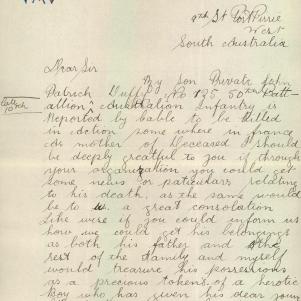 4th St Port Pirie
West
South Australia
Dear Sir
My Son Private John
Patrick Duffy No 135 50th Batt-
late
10th
allion Australian Infantry is
Reported by Cable to be Killed
in action some where in france
as mother of Deceased I should
be deeply greatful to you if through
your organization you could get
some news or paticulars relating
to his death, as the same would
be to us a great consolation
Like wise if you could inform us
how we could get his belongings
as both his father and the
rest of the family and myself
would treasure his possessions
as a precious tokens of a heroic
Boy who has given his dear young